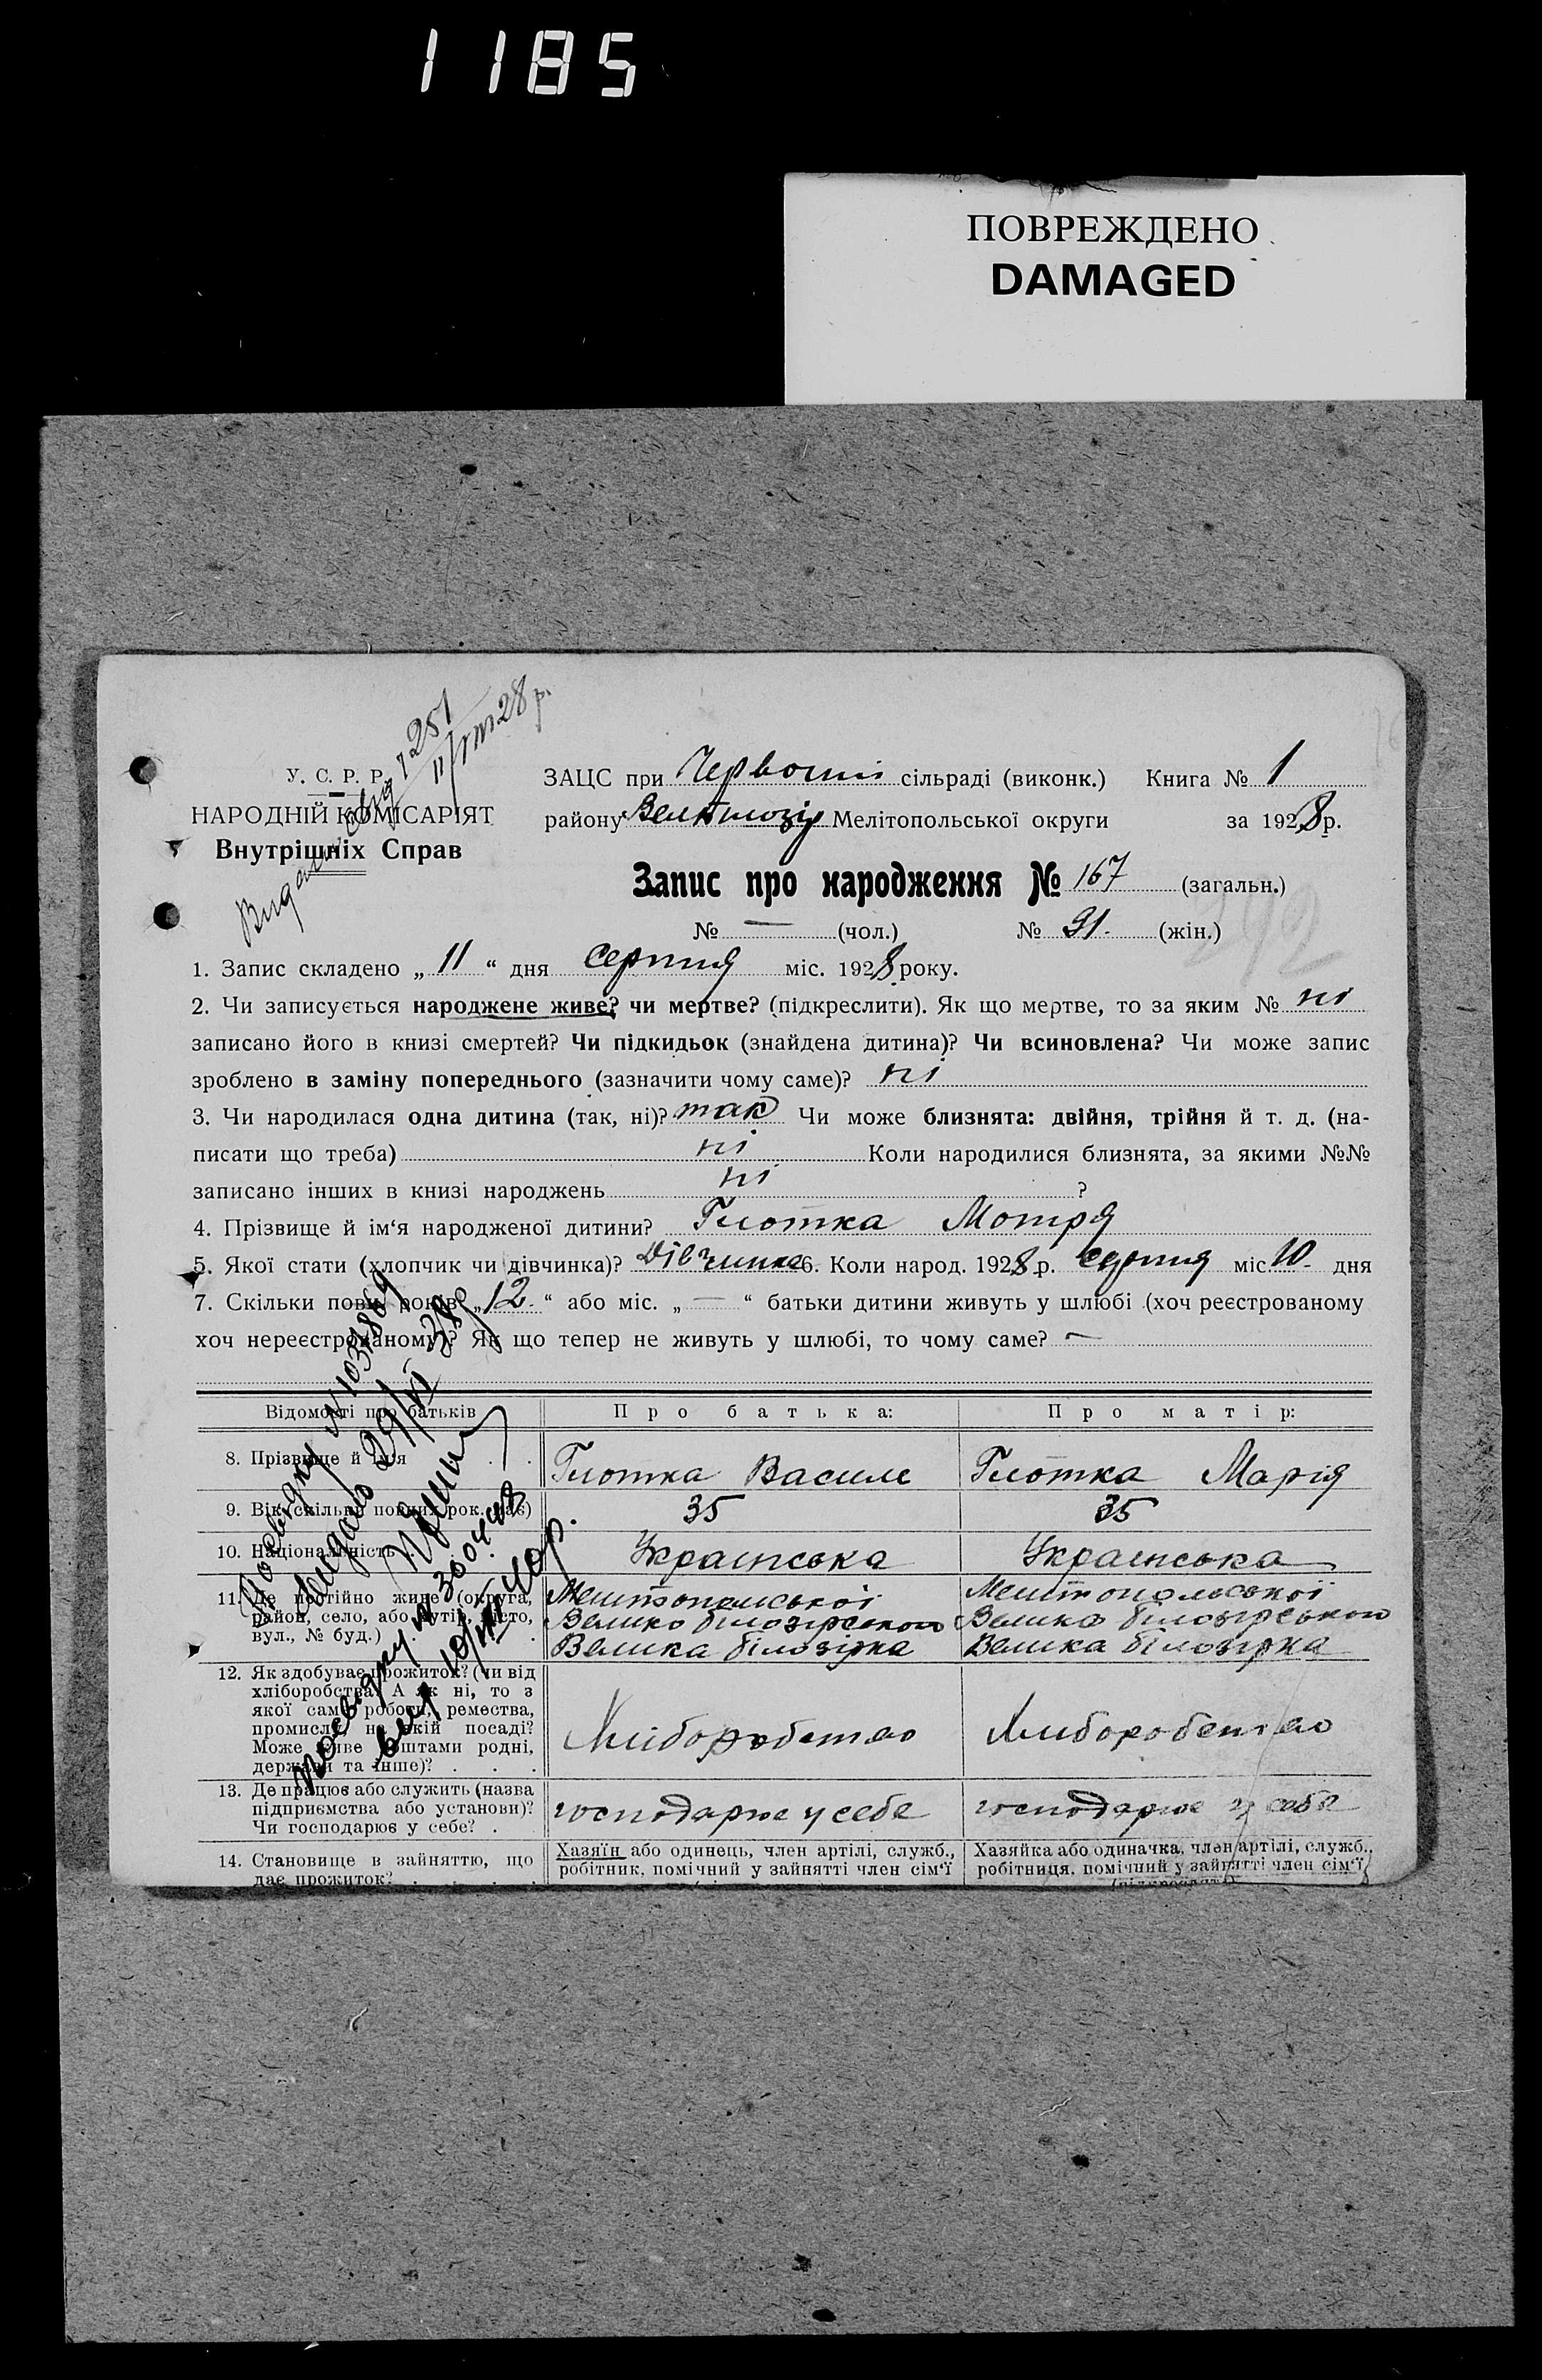 1185
ПОВРЕЖДЕНО
DAMAGED
251
11/VIII 28 р.
У. С. Р. Р.
НАРОДНІЙ КОМІСАРІЯТ
Внутрішніх Справ
ЗАЦС при Червоній сільраді (виконк.) Книга № 1
району Мелітопольської округи за 1928 р.
Запис про народження № 167 (загальн.)
№ — (чол.) № 91. (жін.)
292
1. Запис складено „ 11 “ дня серпня міс. 1928 року.
2. Чи записується народжене живе? чи мертве? (підкреслити). Як що мертве, то за яким № ні
записано його в книзі смертей? Чи підкидьок (знайдена дитина)? Чи всиновлена? Чи може запис
зроблено в заміну попереднього (зазначити чому саме)? ні
3. Чи народилася одна дитина (так, ні)? так Чи може близнята: двійня, трійня й т. д. (на-
писати що треба) ні Коли народилися близнята, за якими №№
записано інших в книзі народжень ні ?
4. Прізвище й ім‘я народженої дитини? Глотка Мотря
5. Якої стати (хлопчик чи дівчинка)? Дівчинка 6. Коли народ. 1928 р. серпня міс. 10 дня
7. Скільки повн. років „ 12. “ або міс. „ — “ батьки дитини живуть у шлюбі (хоч реєстрованому
хоч нереєстрованому)? Як що тепер не живуть у шлюбі, то чому саме? —
Відомості про батьків Про батька: Про матір:
8. Прізвище й ім‘я Глотка Василь Глотка Марія
9. Вік (скільки повних рок. має) 35 35
10. Національність Українська Українська
11. Де постійно живе (округа, Мелітопольської Мелітопольської
район, село, або хутір, місто, Велико білозірського Велико білозірського
вул., № буд.) Велика білозірка Велика білозірка
12. Як здобуває прожиток? (чи від
хліборобства? А як ні, то з
якої саме роботи, ремества,
промислу, на якій посаді? Хліборобство Хліборобство
Може живе коштами родні,
держави та інше)?
13. Де працює або служить (назва
підприємства або установи)? господарює у себе господарює у себе
Чи господарює у себе?
14. Становище в зайняттю, що Хазяїн або одинець, член артілі, служб., Хазяйка або одиначка, член артілі, служб.,
дає прожиток? робітник, помічний у зайнятті член сім‘ї робітниця, помічний у зайнятті член сім‘ї